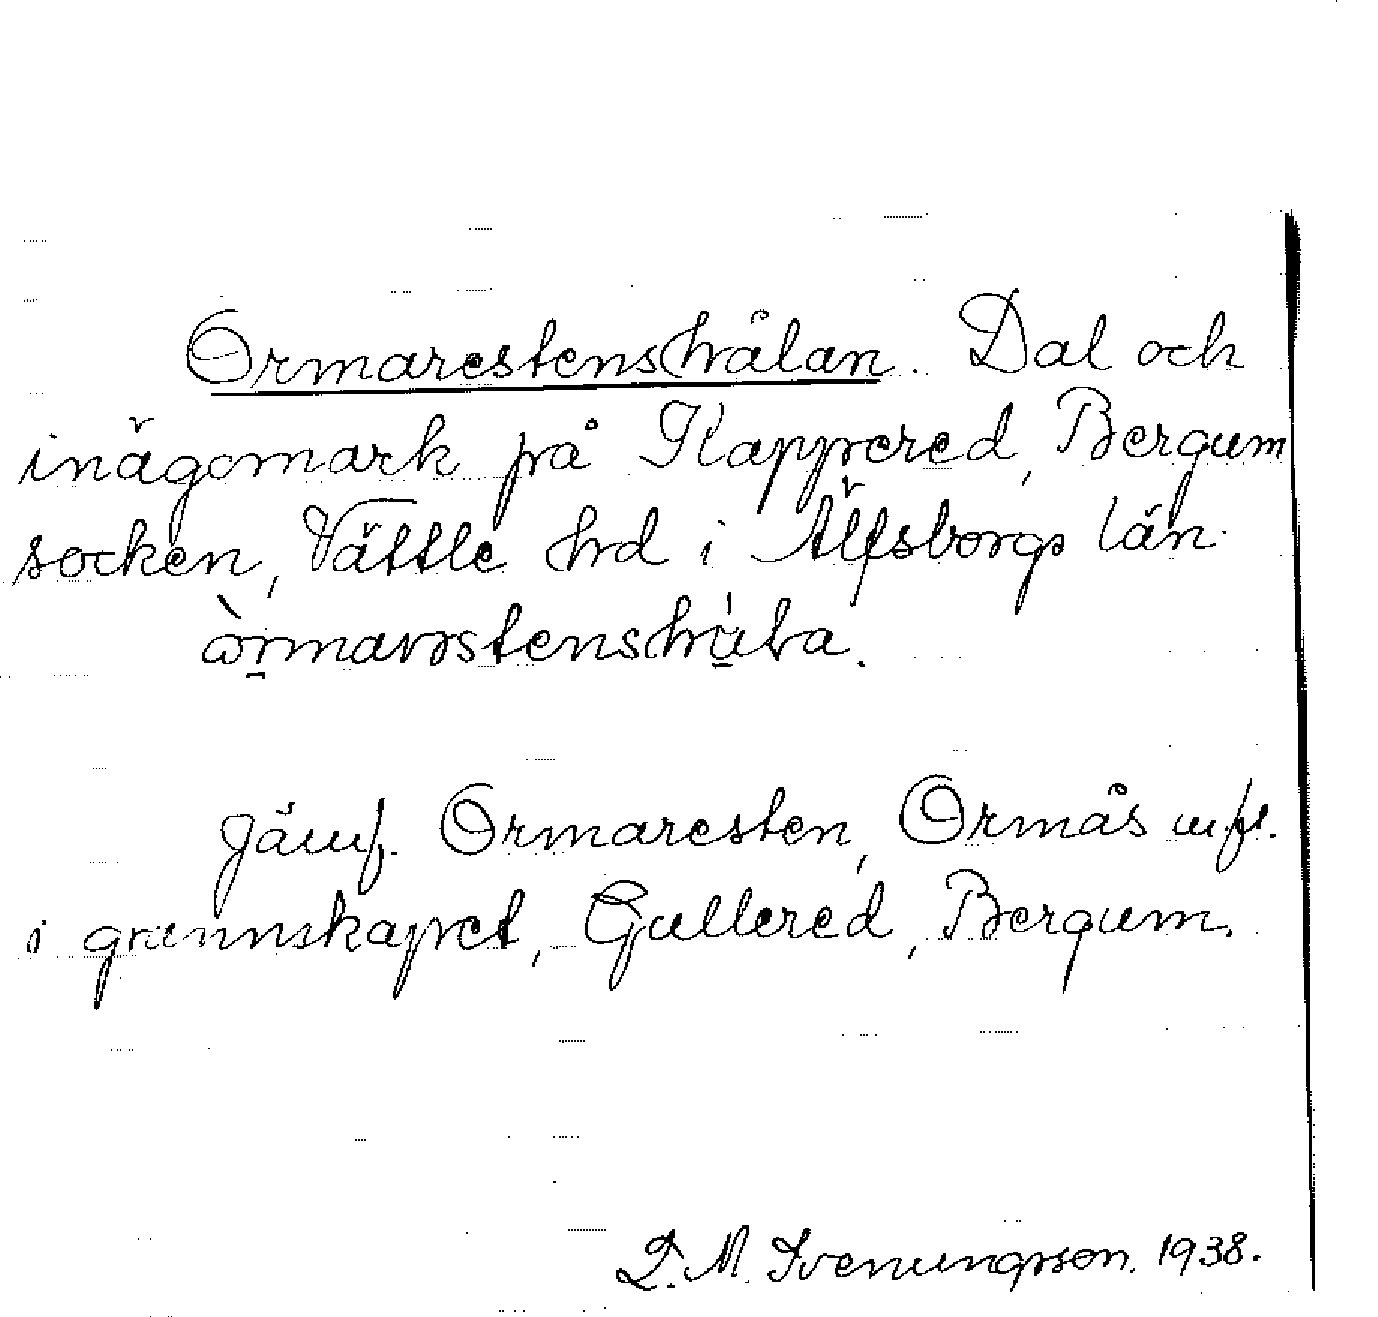 Ormarestenshålan. Dal och
inägomark på Kappered, Bergum
socken, Vättle hrd i Älfsborgs län.
Jämf. Ormaresten, Ormås m.fl.
i grannskapet, Gullered, Bergum.
D. M. Svenungsson. 1938.